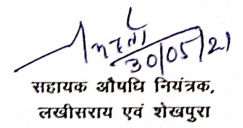 30/05/21
सहायक औषधि नियंत्रक,
लखीसराय एवं शेखपुरा